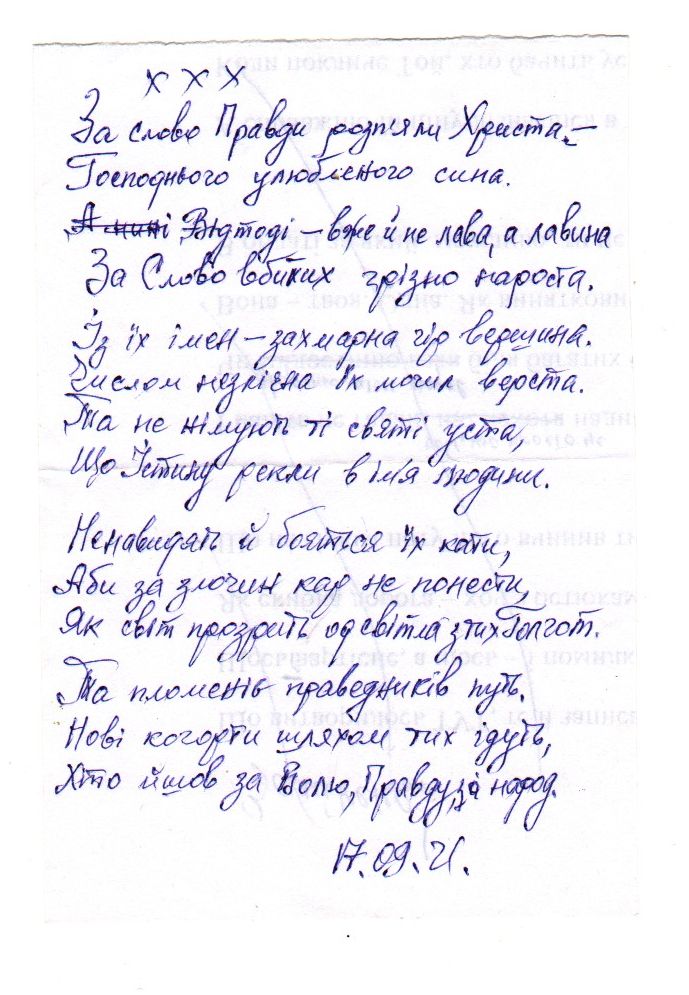 х х х
За слово Правди розп'яли Христа –
Господнього улюбленого сина.
А нині Відтоді – вже й не лава, а лавина
За Слово вбитих грізно нароста.
Із їх імен – захмарна гір вершина.
Числом незлічена їх могил верста.
Та не німують ті святі уста,
Що Істину рекли в ім'я людини.
Ненавидять й бояться їх кати,
Аби за злочин кар не понести,
Як світ прозріть од світла з тих Голгот.
Та пломеніє праведників путь.
Нові когорти шляхом тих ідуть,
Хто йшов за Волю, Правду, за народ.
17.09.21.